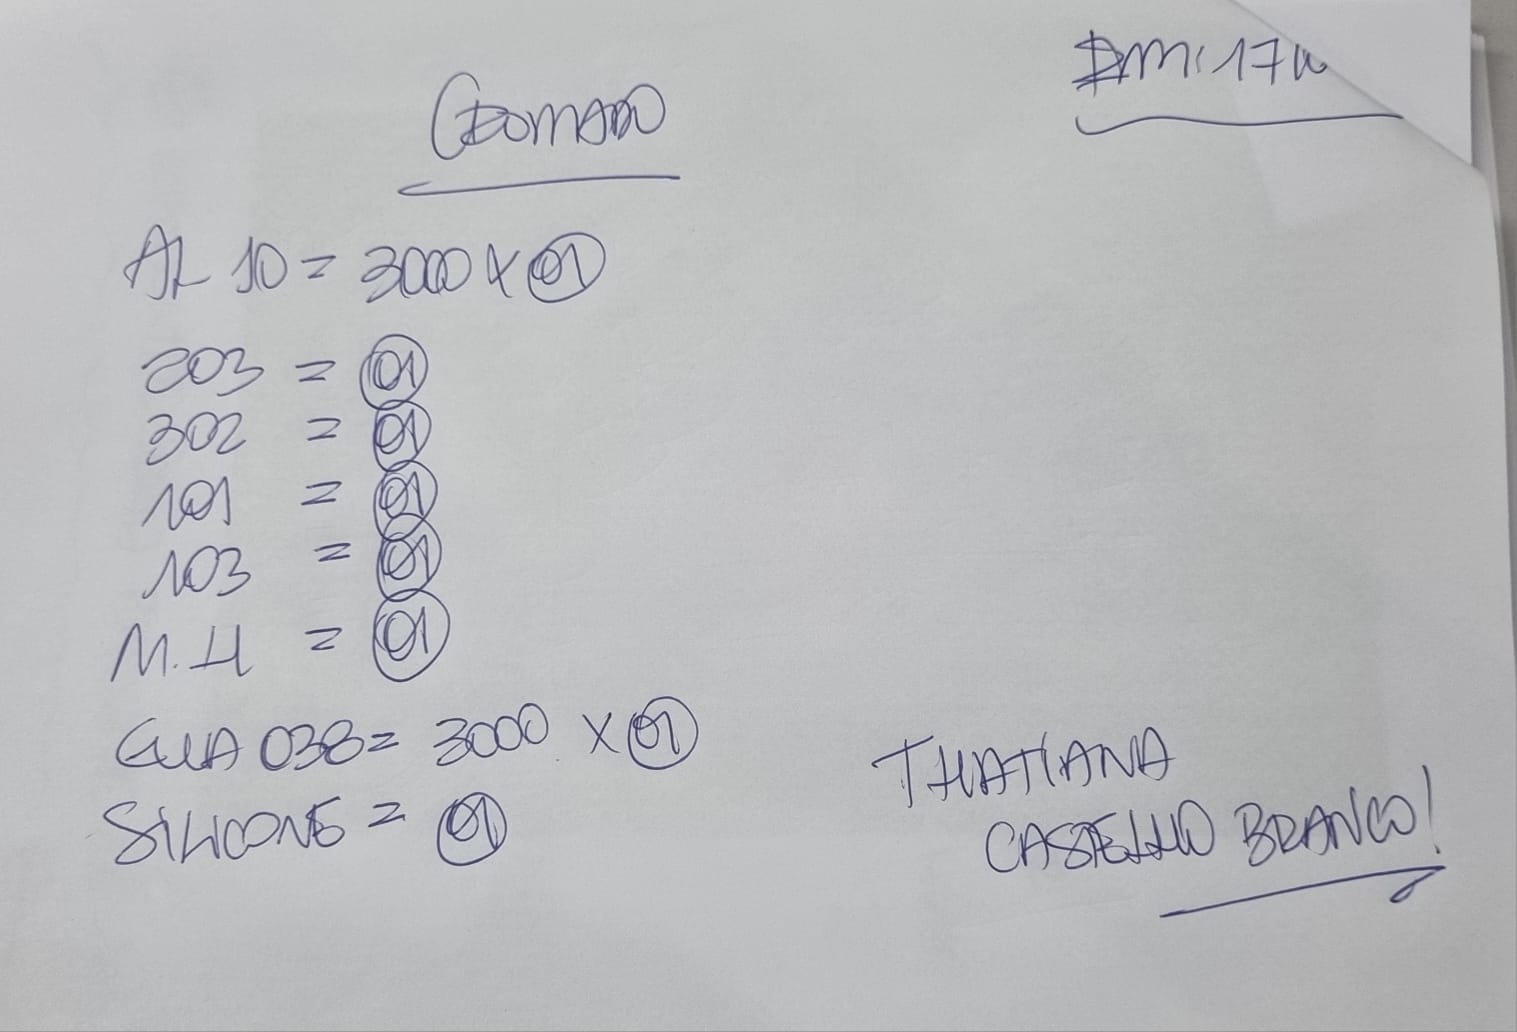 CROMADO
AL 10 = 3000 X 01
203 = 01
302 = 01
101 = 01
103 = 01
M.H = 01
GUIA 038 = 3000 X 01
SILICONE = 01
THATIANA
CASTELLO BRANCO!